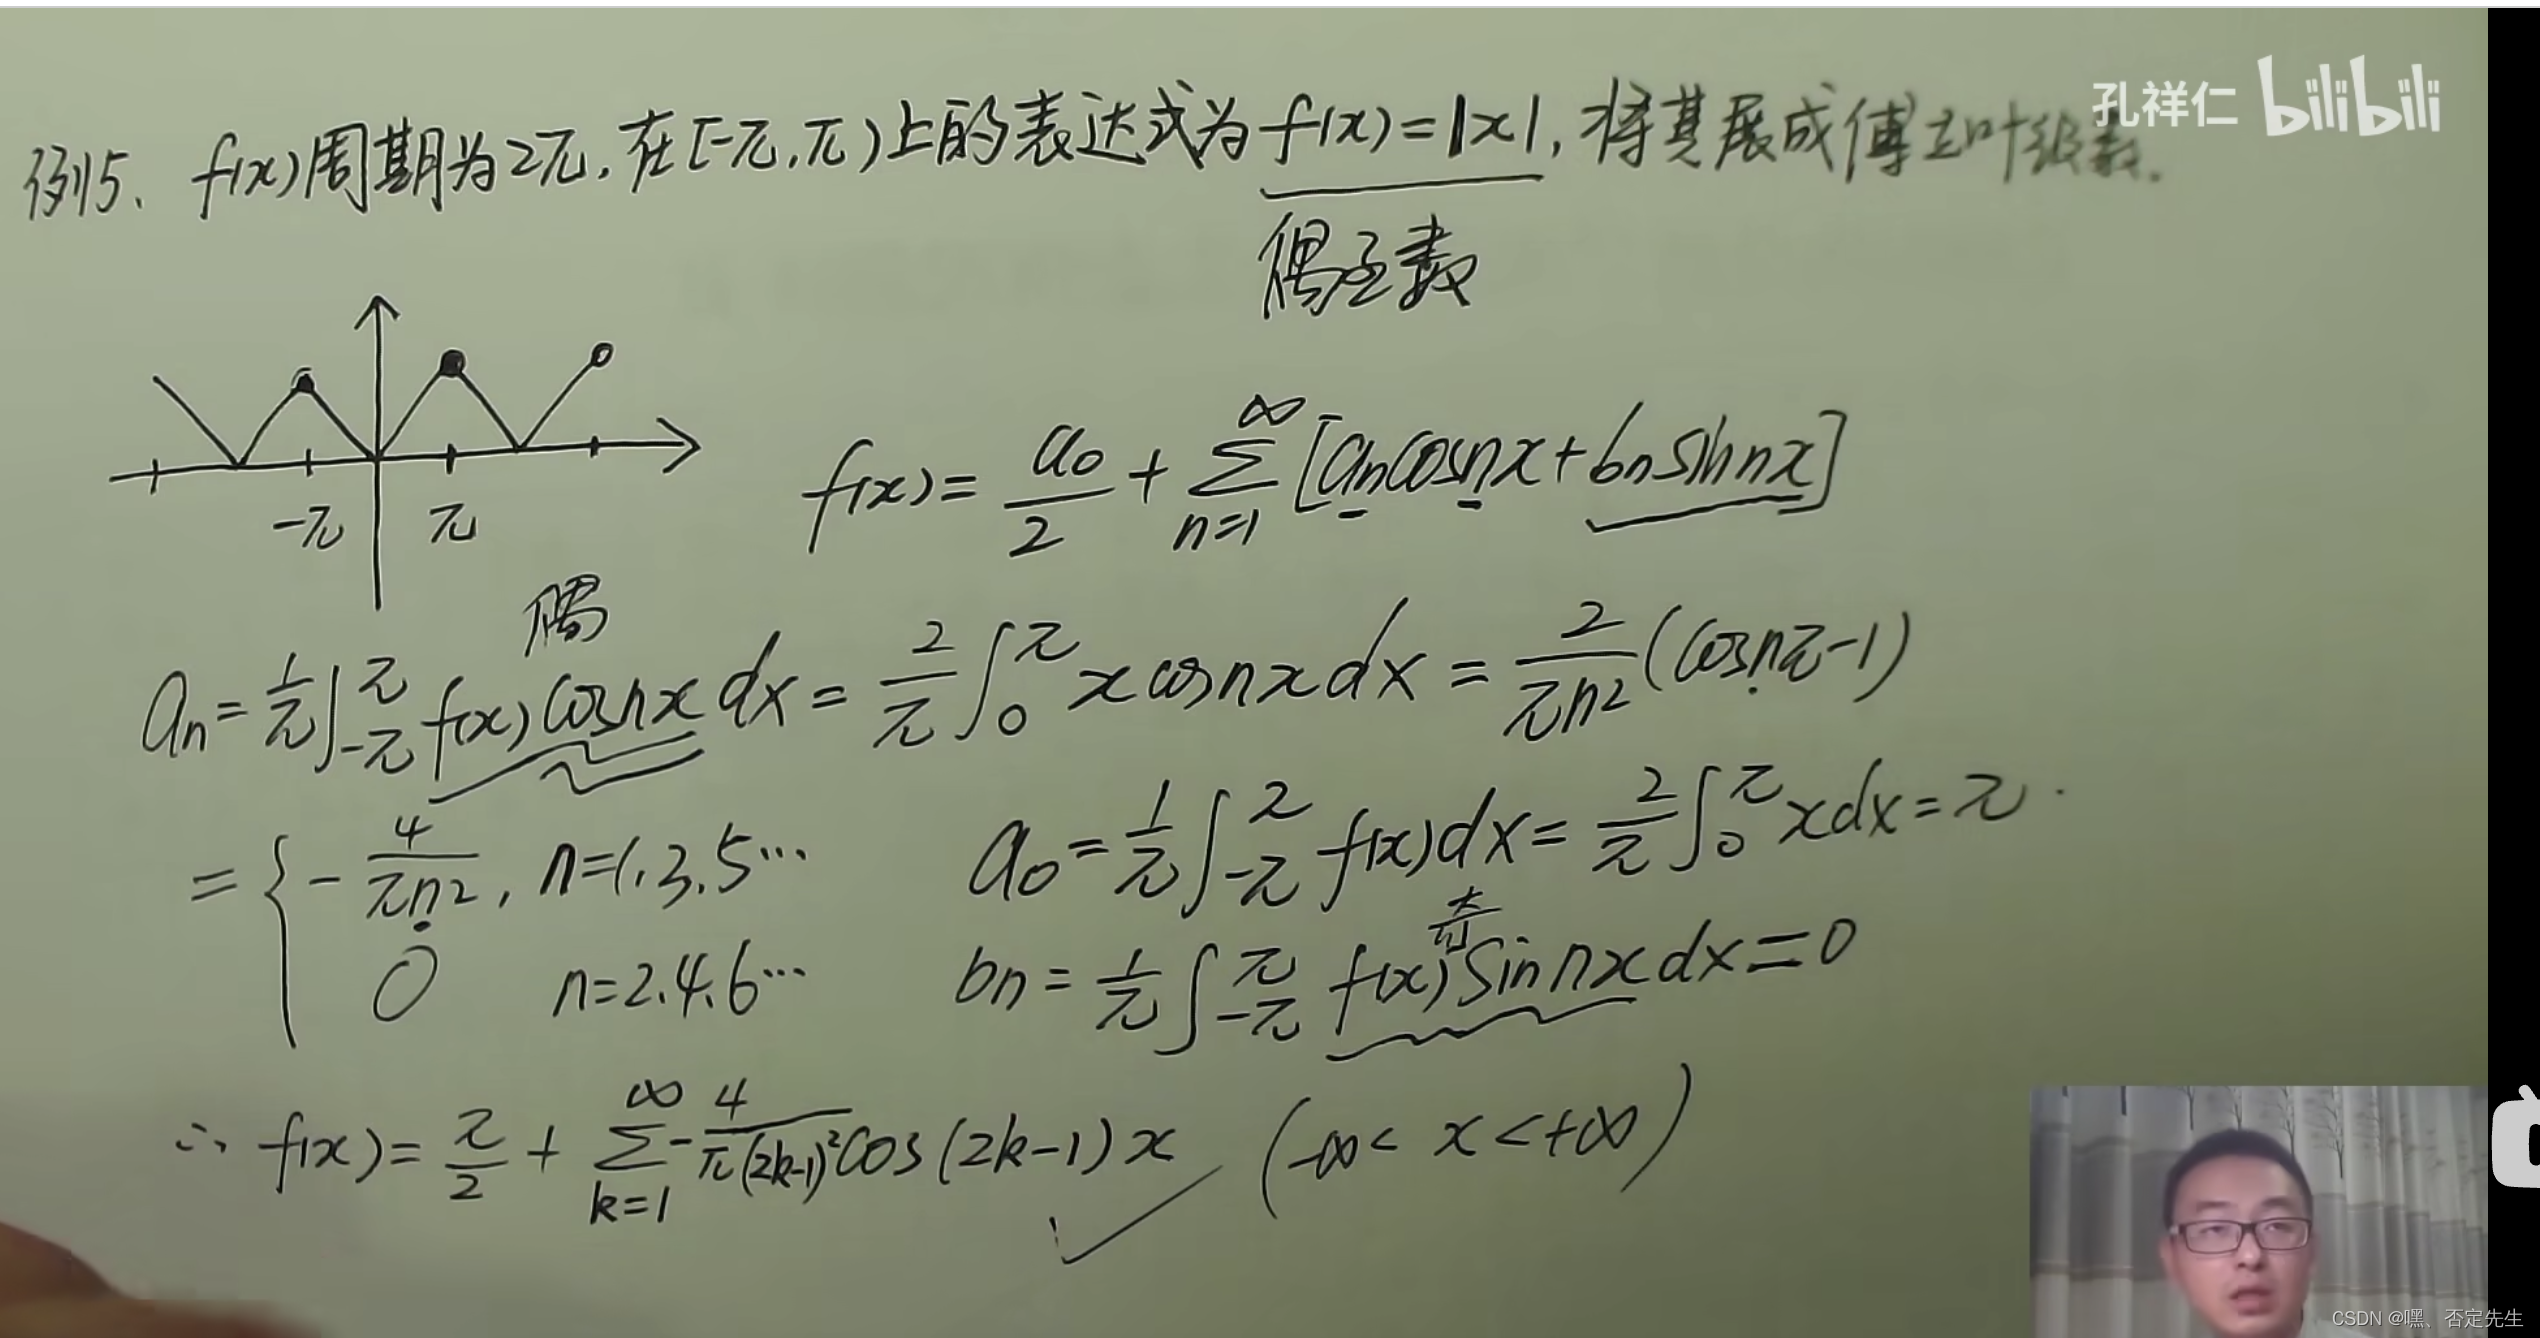 孔祥仁 bilibili
例5、f(x)周期为2π,在[-π,π)上的表达式为f(x)=|x|,将其展成傅立叶级数.
偶函数
-π π
f(x)= a₀/2 + ∑_{n=1}^{∞} [aₙcosnx+bₙsinnx]
偶
aₙ= 1/π ∫_{-π}^{π} f(x)cosnx dx = 2/π ∫_{0}^{π} x cosnx dx = 2/(πn²) (cosnπ-1)
= { -4/(πn²), n=1.3.5…
0 n=2.4.6…
a₀= 1/π ∫_{-π}^{π} f(x)dx = 2/π ∫_{0}^{π} xdx = π.
奇
bₙ= 1/π ∫_{-π}^{π} f(x)sinnxdx=0
∴ f(x)= π/2 + ∑_{k=1}^{∞} -4/(π(2k-1)²) cos(2k-1)x (-∞< x <+∞)
CSDN @嘿、否定先生